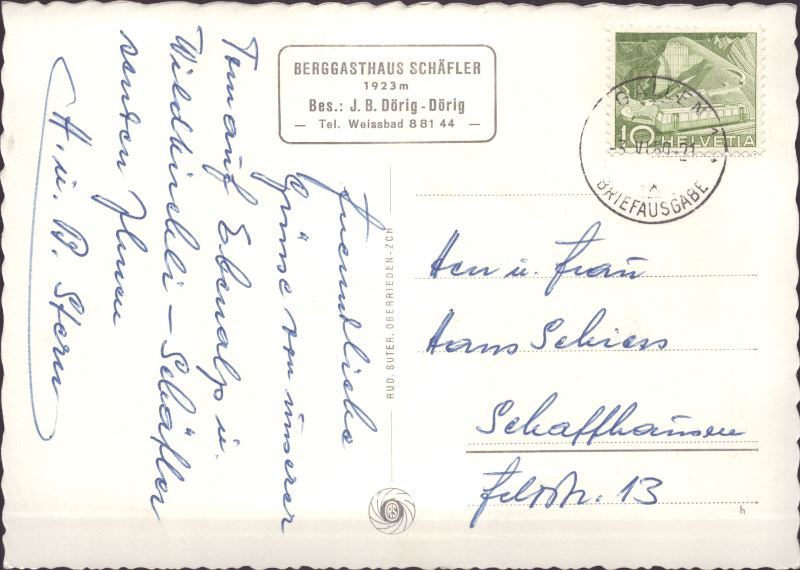 BERGGASTHAUS SCHÄFLER
1923 m
Bes.: J. B. Dörig - Dörig
— Tel. Weissbad 8 81 44 —
Freundliche
Grüsse von unserer
Tour auf Ebenalp u.
Wildkirchli – Schäfler
senden Ihnen
H. u. B. Stern
RUD. SUTER, OBERRIEDEN-ZCH
10 HELVETIA
GALLEN 1
-3. VI. 60-21
BRIEFAUSGABE
Herr u. Frau
Hans Schiess
Schaffhausen
Feldstr. 13
h